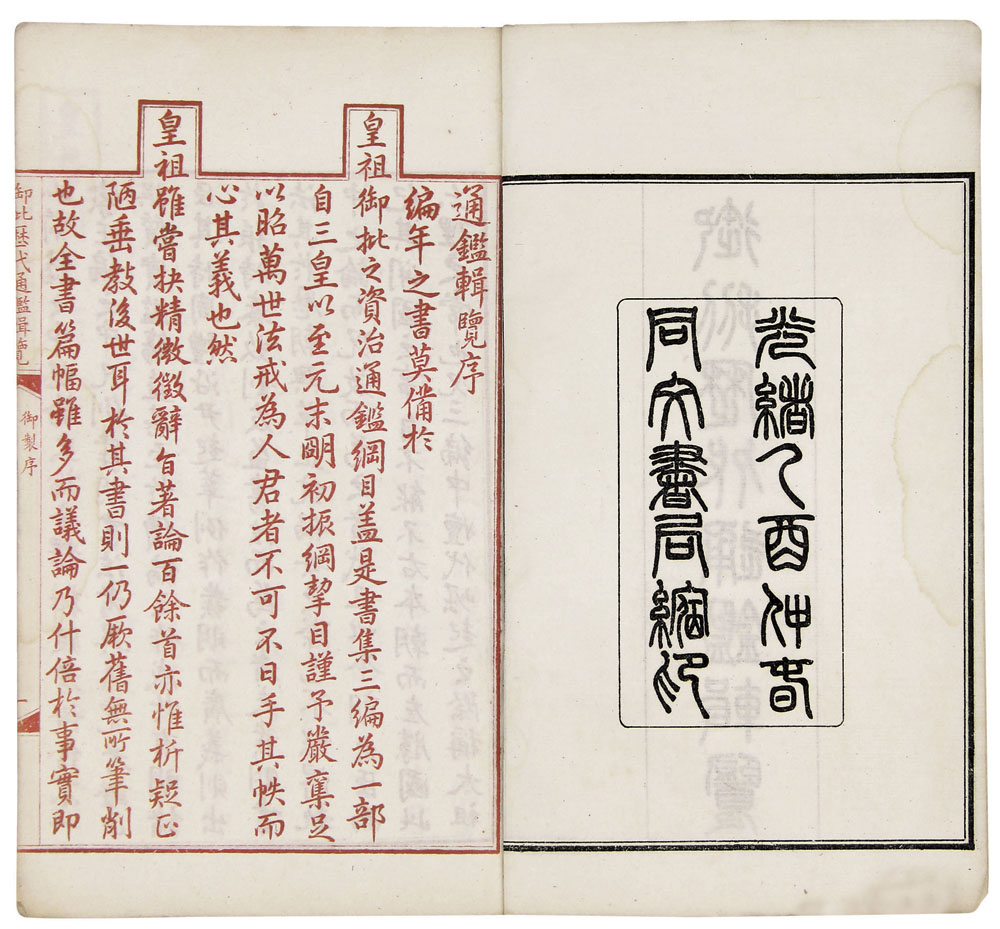 光緒乙酉仲春
同文書局縮印
通鑑輯覽序
編年之書莫備於
皇祖御批之資治通鑑綱目盖是書集三編為一部
自三皇以至元末明初振綱挈目謹予嚴奪足
以昭萬世法戒為人君者不可不日手其帙而
心其義也然
皇祖雖嘗抉精微徵辭旨著論百餘首亦惟析疑正
陋垂教後世耳於其書則一仍厥舊無所筆削
也故全書篇幅雖多而議論乃什倍於事實即
御批歷代通鑑輯覽
御製序
一